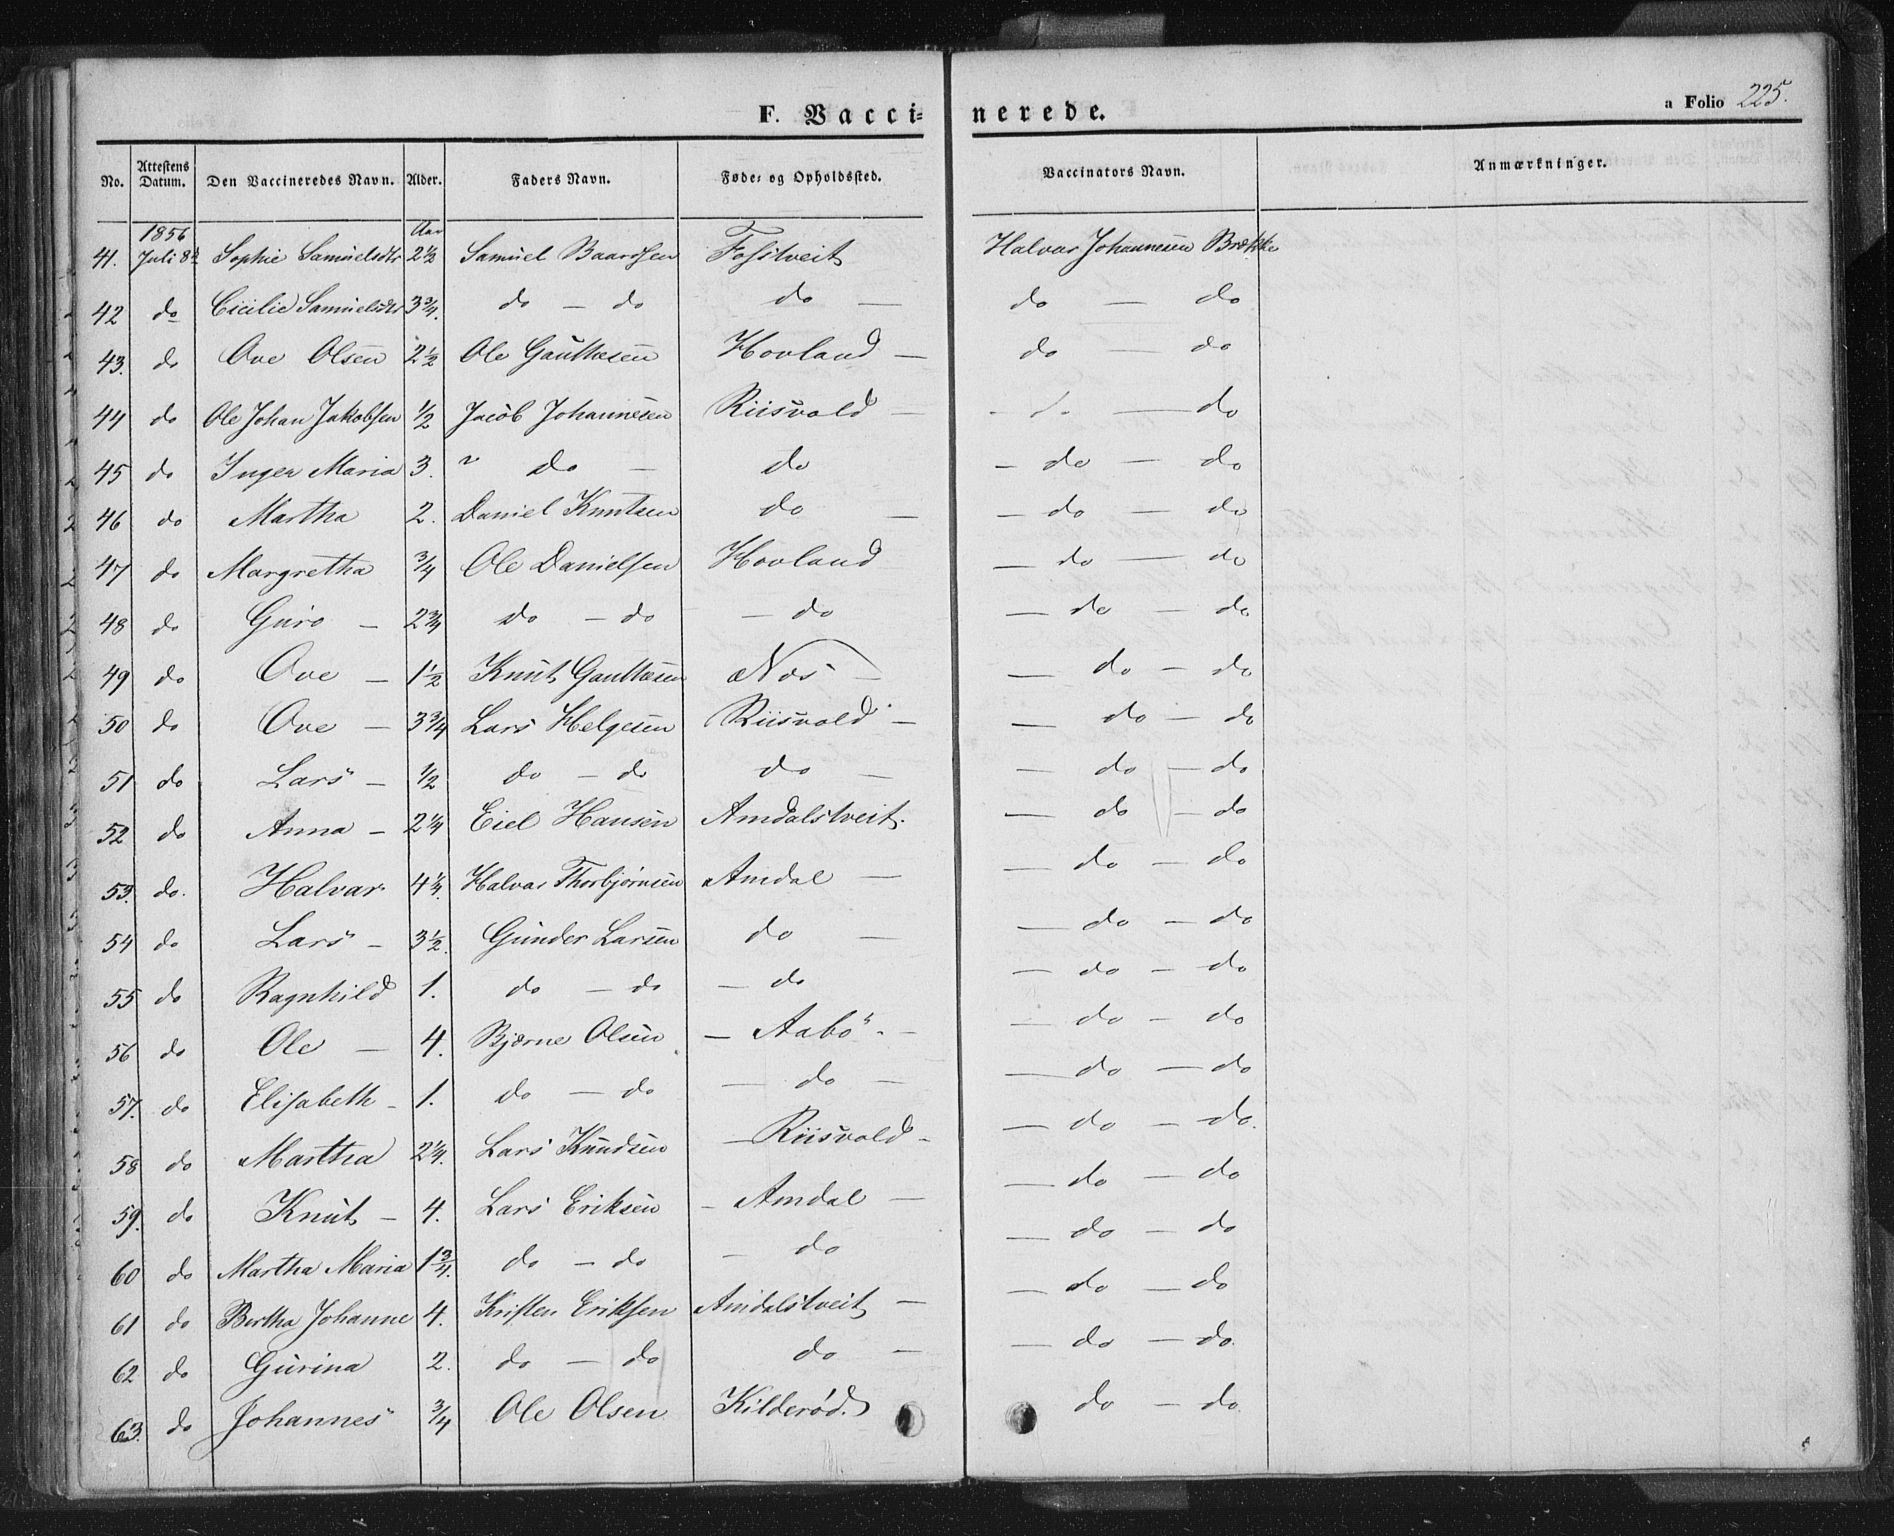 F. Vacci-
nerede.
a Folio 225.
No. Attestens Datum. Den Vaccineredes Navn. Alder. Faders Navn. Føde- og Opholdssted. Vaccinators Navn. Anmærkninger.
1856 Aar
41. Juli 8d Sophie Samuelsdtr 2½ Samuel Baardsen Fositveit Halvar Johannesen Brække
42 do Cicilie Samuelsdtr 3¾. do — do do — do — do
43. do Ove Olsen 2½ Ole Gauttesen Hovland — do — do
44 do Ole Johan Jakobsen ½ Jacob Johannesen Riisvold — - do — do
45 do Inger Maria 3. " do — do — do — do
46 do Martha 2. Daniel Knutsen do — — do — do
47 do Margretha ¾ Ole Danielsen Hovland — do — do
48 do Guro — 2¾ do — do — do — do — do
49 do Ove — 1½ Knut Gauttesen Næs — — do — do
50 do Ove — 3¾ Lars Helgesen Riisvold — — do — do
51 do Lars — ½ do — do do — — do — do
52 do Anna — 2¼ Eiel Hansen Amdalstveit. — do — do
53. do. Halvar 4¼. Halvar Thorbjørnsen Amdal — — do — do
54 do Lars — 3½. Gunder Larsen do — — do — do
55 do Ragnhild 1. do — do — do — do — do
56 do Ole — 4. Bjærne Olsen — Aabø — — do — do
57. do Elisabeth — 1. do — do — do — — do — do
58 do Martha 2¼. Lars Knudsen — Riisvold — — do — do.
59. do Knut — 4. Lars Eriksen — Amdal — — do — do
60 do Martha Maria 1¾. do — do — do — do — do
61 do Bertha Johanne 4. Kristen Eriksen Amdalstveit — — do — do
62 do Gurina 2. do — do do — — do — do.
63. do Johannes ¾ Ole Olsen Kilderød. do — do.